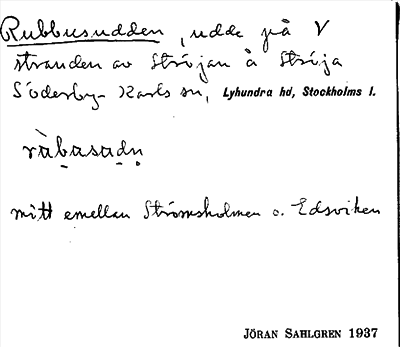 Rubbusudden, udde på V
stranden av Ströjan å Ströja
Söderby-Karls sn, Lyhundra hd, Stockholms l.
ràbasadn
mitt emellan Strömsholmen o. Edsviken
JÖRAN SAHLGREN 1937